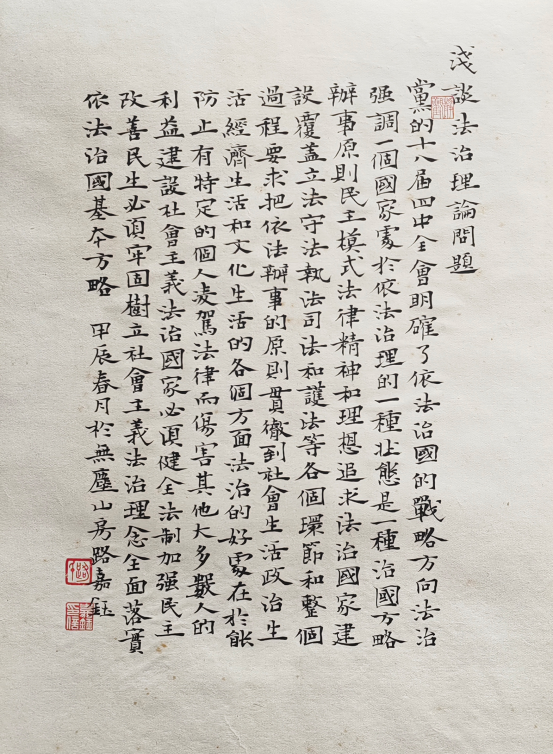 淺談法治理論問題
黨的十八届四中全會明確了依法治國的戰略方向法治
强調一個國家處於依法治理的一種狀態是一種治國方略
辦事原則民主模式法律精神和理想追求法治國家建
設覆蓋立法守法執法司法和護法等各個環節和整個
過程要求把依法辦事的原則貫徹到社會生活政治生
活經濟生活和文化生活的各個方面法治的好處在於能
防止有特定的個人凌駕法律而傷害其他大多數人的
利益建設社會主義法治國家必須健全法制加强民主
改善民生必須牢固樹立社會主義法治理念全面落實
依法治國基本方略 甲辰春月於無塵山房路嘉鈺